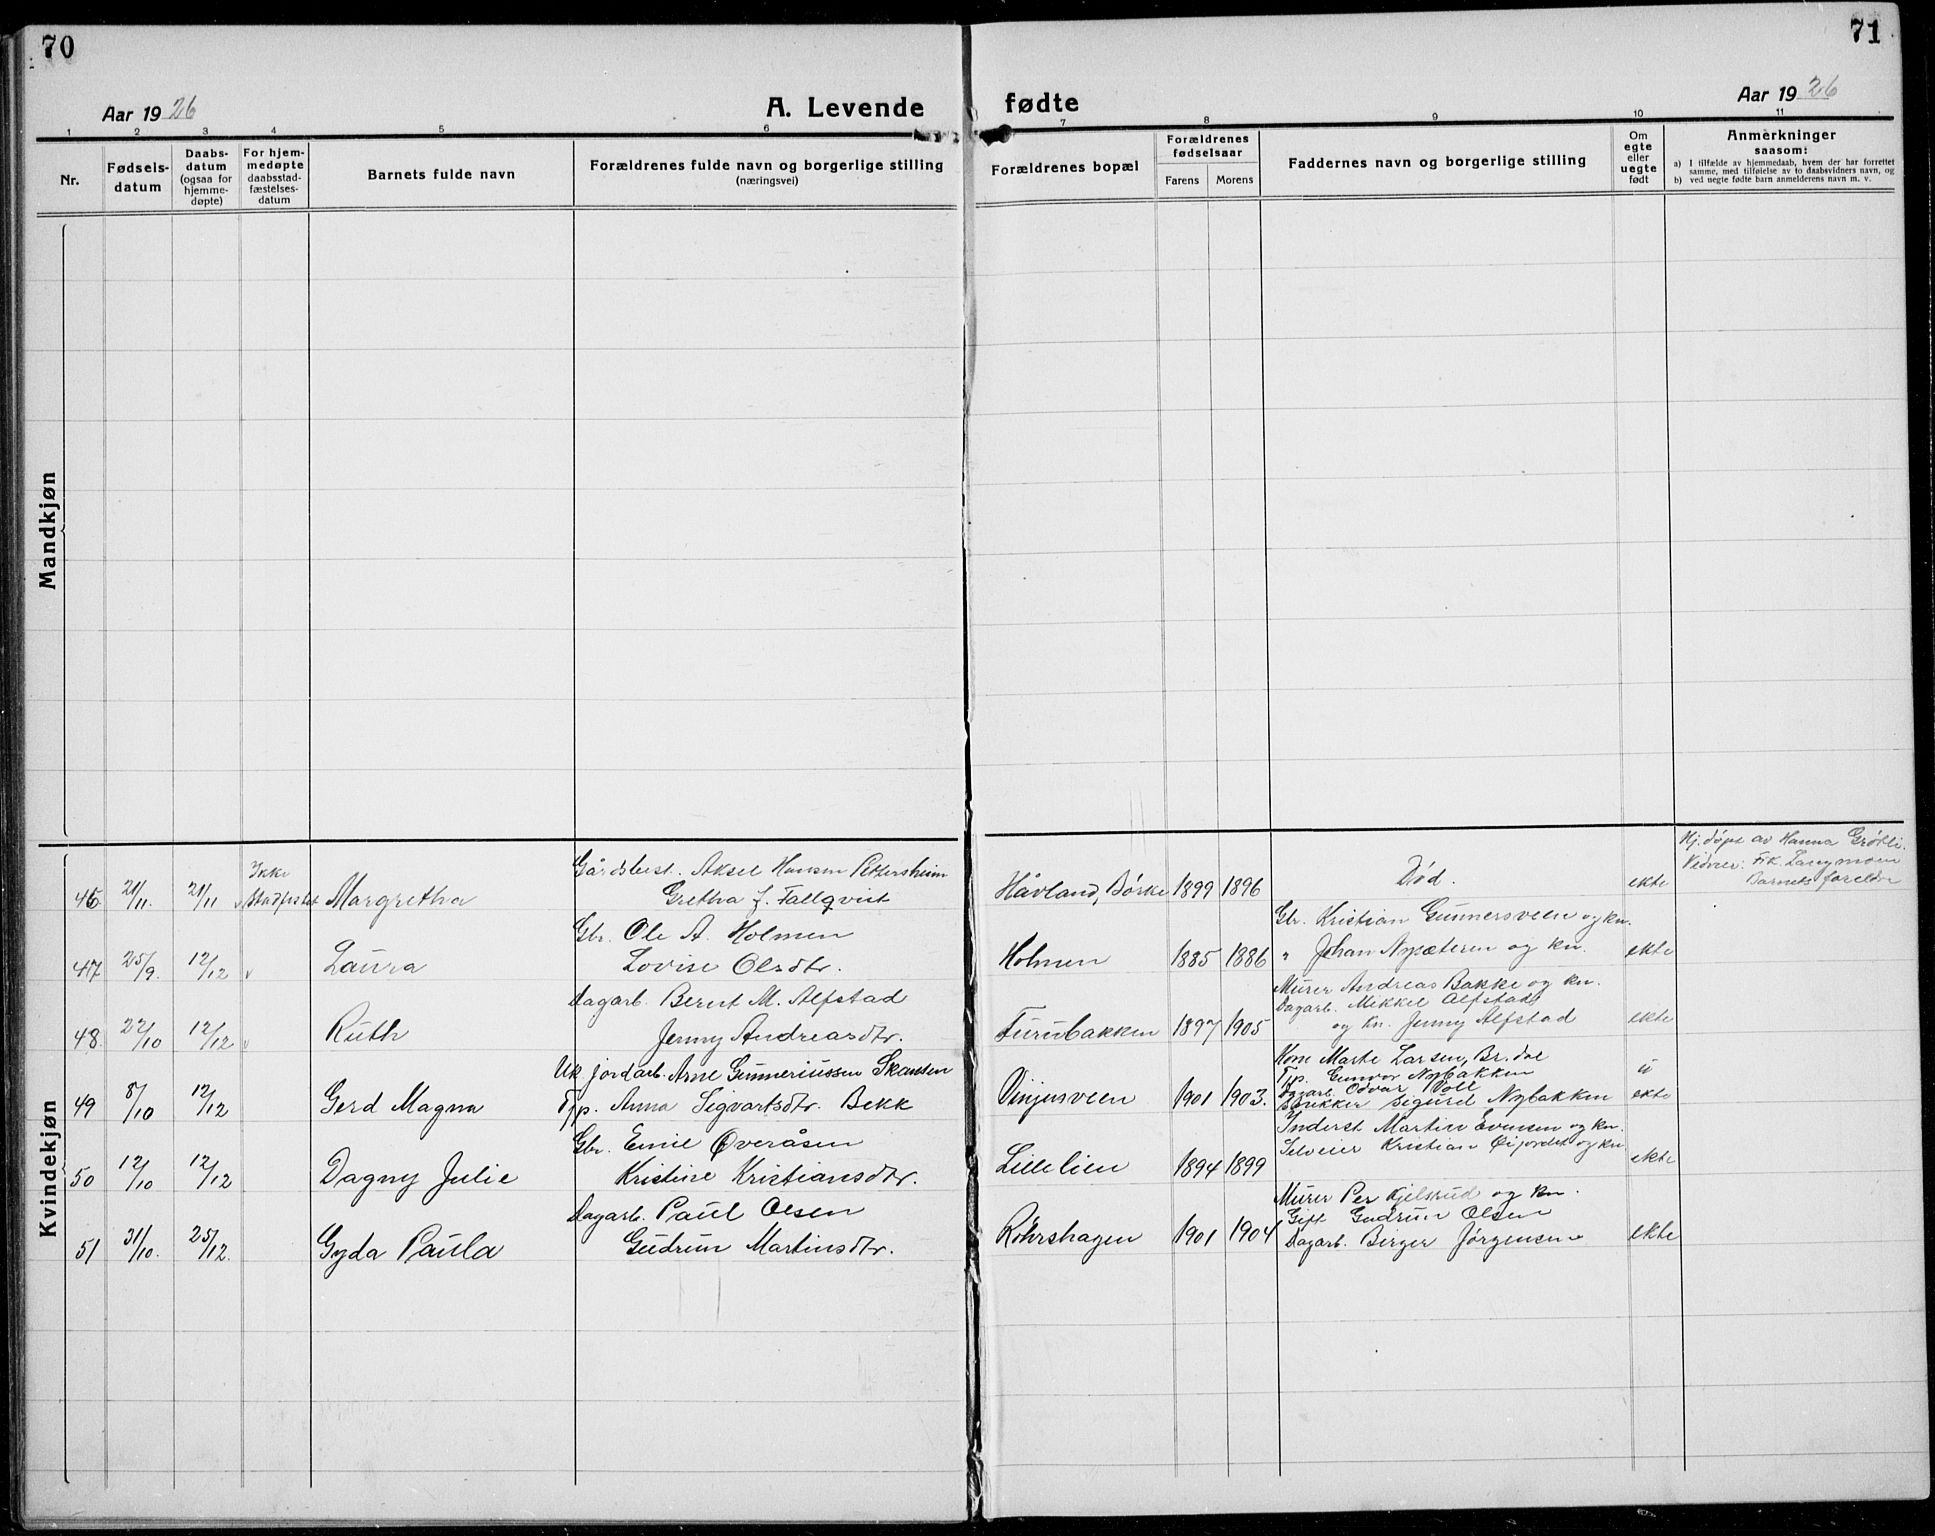 70
71
Aar 1926
A. Levende
fødte
Aar 1926
1 2 3 4 5 6 7 8 9 10 11
Nr.
Fødsels-
datum
Daabs-
datum
(ogsaa for
hjemme-
døpte)
For hjem-
medøpte
daabsstad-
fæstelses-
datum
Barnets fulde navn
Forældrenes fulde navn og borgerlige stilling
(næringsvei)
Forældrenes bopæl
Forældrenes
fødselsaar
Farens Morens
Faddernes navn og borgerlige stilling
Om
egte
eller
uegte
født
Anmerkninger
saasom:
a) I tilfælde av hjemmedaab, hvem der har forrettet
samme, med tilføielse av to daabsvidners navn, og
b) ved uegte fødte barn anmelderens navn m. v.
Mandkjøn
Kvindekjøn
46 21/11. 21/11 Ikke
Stadfestet
Margretha
Gårdsbest. Aksel Hansen Pettersheim
Gretha J. Fallqvist
Håvland, Børke 1899 1896
Død.
ekte
Hj. døpt av Hanna Grøtli.
Vidner: Frk. Langmoen
Barnets foreldre
47 25/9. 12/12 v
Laura
Gbr. Ole A. Holmen
Lovise Olsdtr.
Holmen 1885 1886
Gbr. Kristian Gunnersveen og kn.
" Johan Nysæteren og kn.
ekte
48. 22/10 12/12 v
Ruth
Dagarb. Bernt M. Alfstad
Jenny Andreasdtr.
Furubakken 1897 1905
Murer Andreas Bakke og kn.
Dagarb. Mikkel Alfstad
og kn. Jenny Alfstad
ekte
49 8/10 12/12
Gerd Magna
Uk. jordarb. Arne Gunneriussen Skansen
Tjp. Anna Sigvartsdtr. Bekk
Vinjusveen 1901 1903.
Kone Marte Larsen, Br.dal
Tjp. Gunvor Nybakken
Dagarb. Odvar Voll
Snikker Sigurd Nybakken
u
ekte
50 12/10 12/12
Dagny Julie
Gbr. Emil Øveråsen
Kristine Kristiansdtr.
Lillelien 1894 1899
Inderst Martin Evensen og kn.
Selveier Kristian Øijordet og kn
ekte
51 31/10. 25/12.
Gyda Paula
Dagarb. Paul Olsen
Gudrun Martinsdtr.
Röhrshagen 1901 1904
Murer Per Kjelsrud og kn.
Gift Gudrun Olsen
Dagarb. Birger Jørgensen
ekte